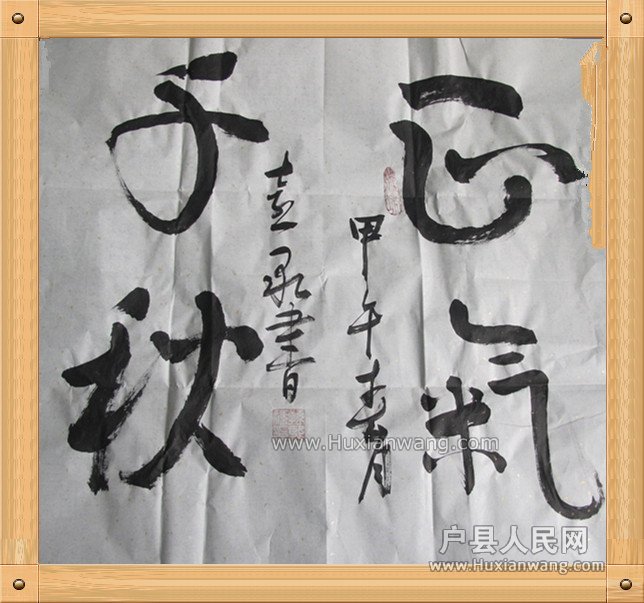 正氣
千秋
甲午
書
www.Huxianwang.com
户县人民网
www.Huxianwang.com